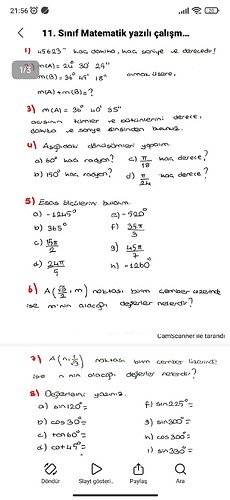 21:56
11. Sınıf Matematik yazılı çalışm...
1) 45623" kaç dakika, kaç saniye ve derecedir!
1/3
m(A) = 24° 30' 24"
m(B) = 36° 45' 18" olmak üzere,
m(A)+m(B) = ?
3) m(A) = 36° 40' 35"
açısının tümler ve bütünlerini derece,
dakika ve saniye cinsinden bulunuz.
4) Aşağıdaki dönüşümleri yapalım.
a) 60° kaç radyan? c) π/18 kaç derece?
b) 150° kaç radyan? d) π/24 kaç derece?
5) Esas ölçülerini bulalım.
a) -1245° e) -520°
b) 365° f) 35π/3
c) 15π/2 g) 45π/7
d) 24π/5 h) -1260°
6) A(√3/2, m) noktası birim çember üzerinde
ise m'nin alacağı değerler nelerdir?
CamScanner ile tarandı
7) A(n, 1/√3) noktası birim çember üzerinde
ise n nin alacağı değerler nelerdir?
8) Değerlerini yazınız.
a) sin120°= f) sin225°=
b) cos30°= g) sin300°=
c) tan60°= h) cos300°=
d) cot45°= i) sin330°=
Döndür Slayt gösteri.. Paylaş Ara